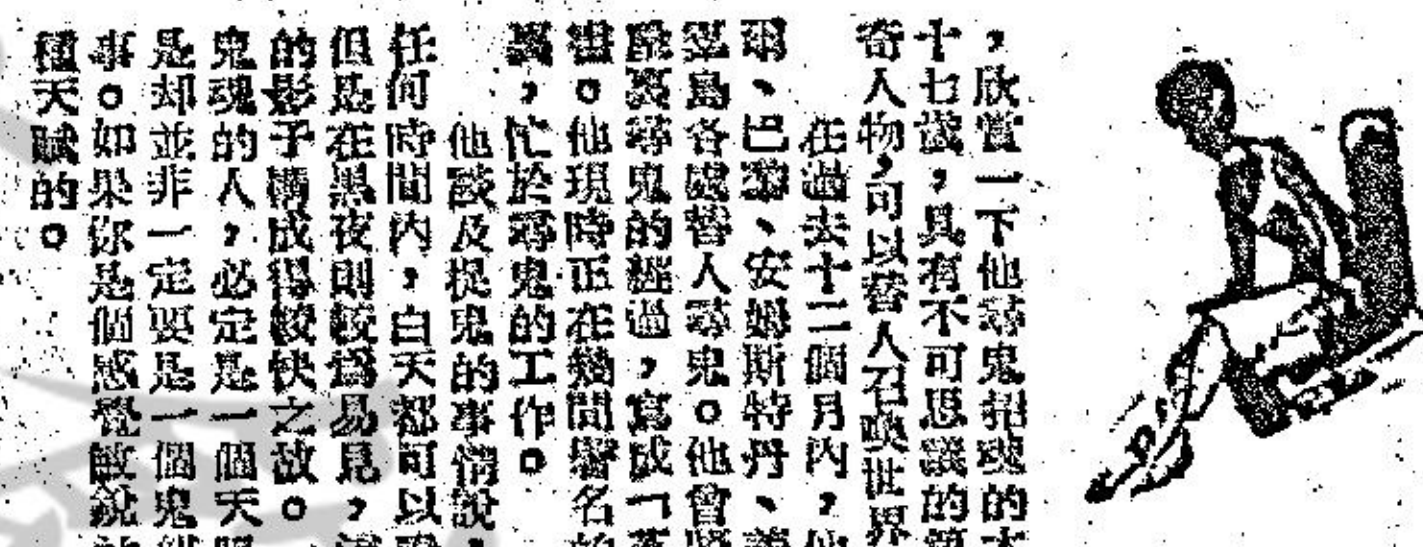 ，欣賞一下他尋鬼招魂的本
十七歲，具有不可思議的
寄人物，可以替人召喚世界
在過去十二個月內，他
爾、巴黎、安姆斯特丹、
島各處替人尋鬼。他曾
裏尋鬼的經過，寫成「英
書。他現時正在幾間著名的
裏，忙於尋鬼的工作。
他談及捉鬼的事情說，
任何時間內，白天都可以
但是在黑夜則較為易見，
的影子構成得較快之故。
鬼魂的人，必定是一個天
是却並非一定要是一個鬼
事。如果你是個感覺敏銳
種天賦的。